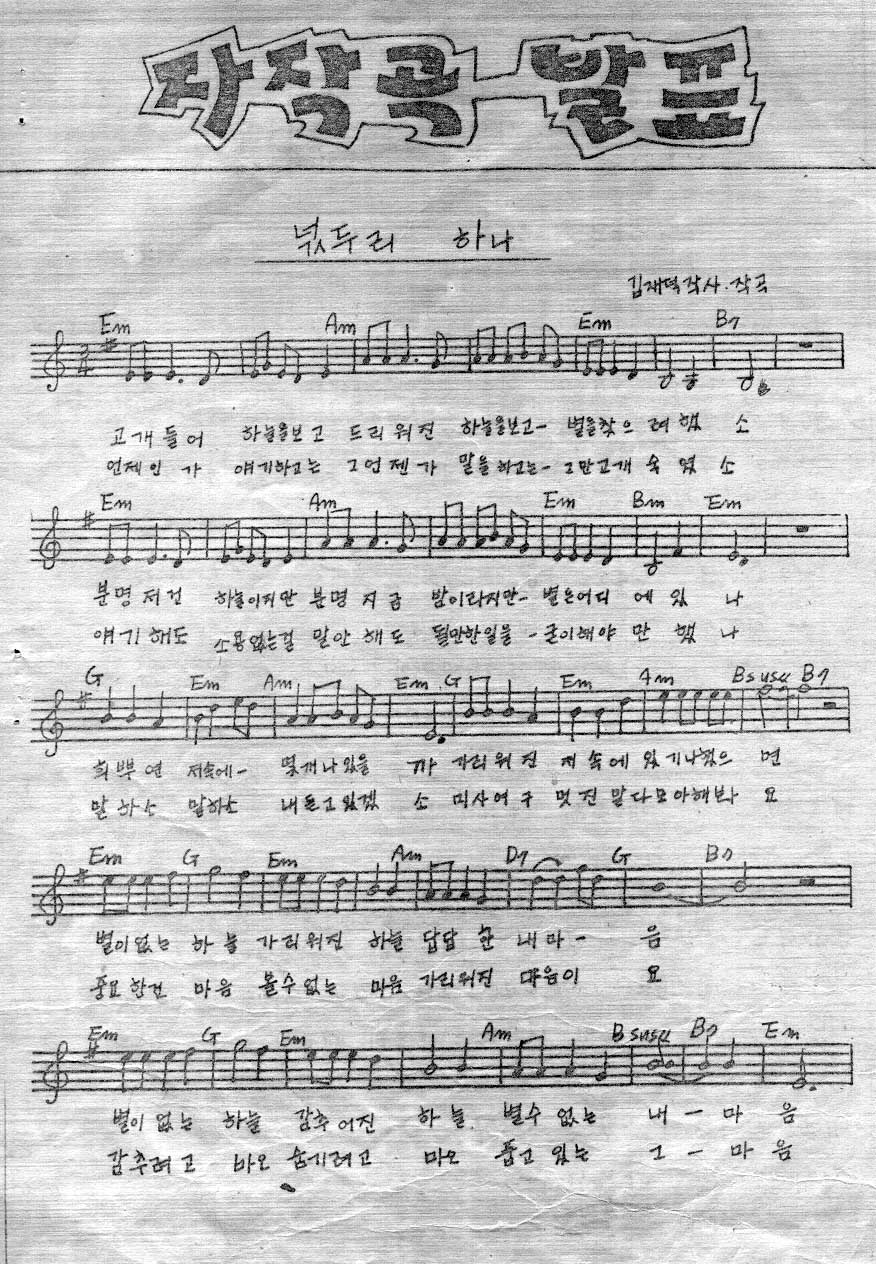 자작곡 발표
넋두리 하나
김재덕 작사·작곡
Em Am Em B7
고개들어 하늘을보고 드리워진 하늘을보고- 별을찾으려했소
언제인가 얘기하고는 그언젠가 말을하고는- 그만고개숙였소
Em Am Em Bm Em
분명저건 하늘이지만 분명지금 밤이라지만- 별은어디에있나
얘기해도 소용없는걸 말안해도 될만한일을-굳이해야만했나
G Em Am Em G Em Am Bsus4 B7
희뿌연 저속에- 몇개나있을까 가리워진 저속에 있기나했으면
말하소 말하소 내듣고있겠소 미사여구 멋진말다모아해보아요
Em G Em Am D7 G B7
별이없는 하늘 가리워진 하늘 답답한 내마-음
중요한건 마음 볼수없는 마음 가리워진 마음이요
Em G Em Am Bsus4 B7 Em
별이없는 하늘 감추어진 하늘 별수없는 내-마음
감추려고 마오 숨기려고 마오 품고있는 그-마음